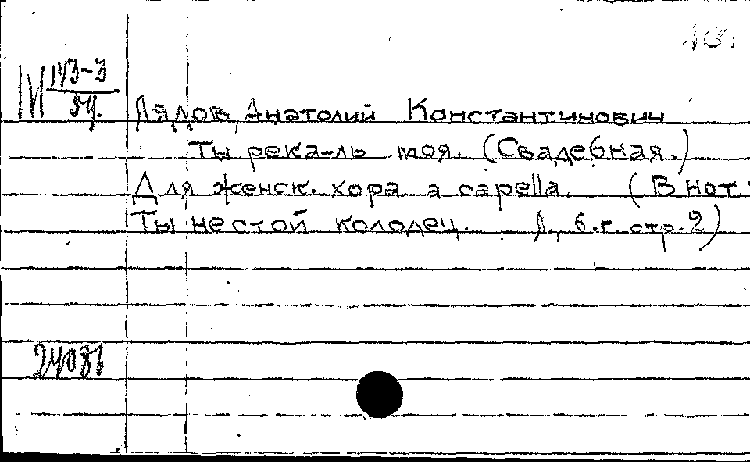 М 143-3
34.
Лядов, Анатолий Константинович
Ты река-ль моя. (Свадебная.)
Для женск. хора a capella. (В нот.:
Ты не стой колодец. Л., б.г. стр. 2)
24081